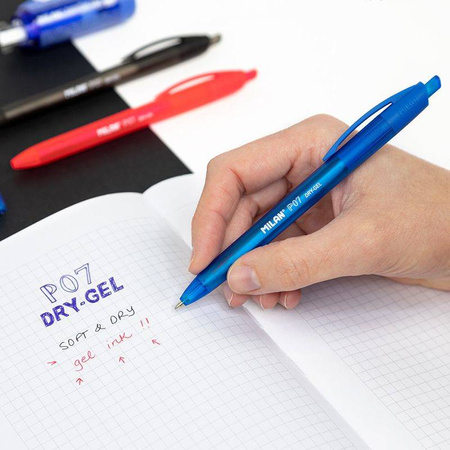 MILAN
MILAN P07
MILAN P07 DRY-GEL
P07
DRY-GEL
SOFT & DRY
> gel ink !!